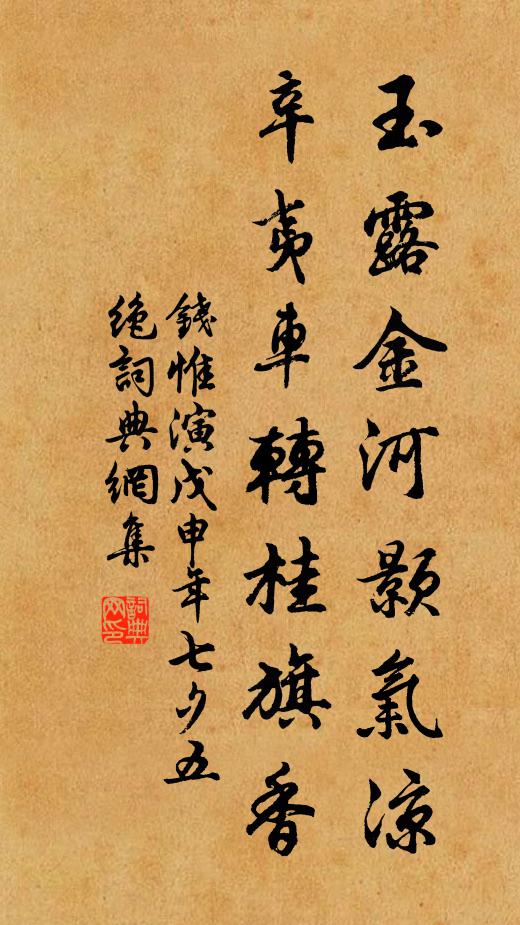 玉露金河顥氣涼
辛夷車轉桂旗香
錢惟演戊申年七夕五
絶詞典網集
詞典
網印